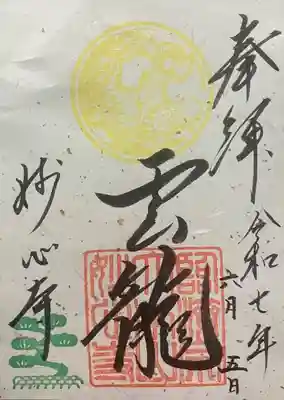 奉拝
令和七年
六月五日
雲龍
妙心寺